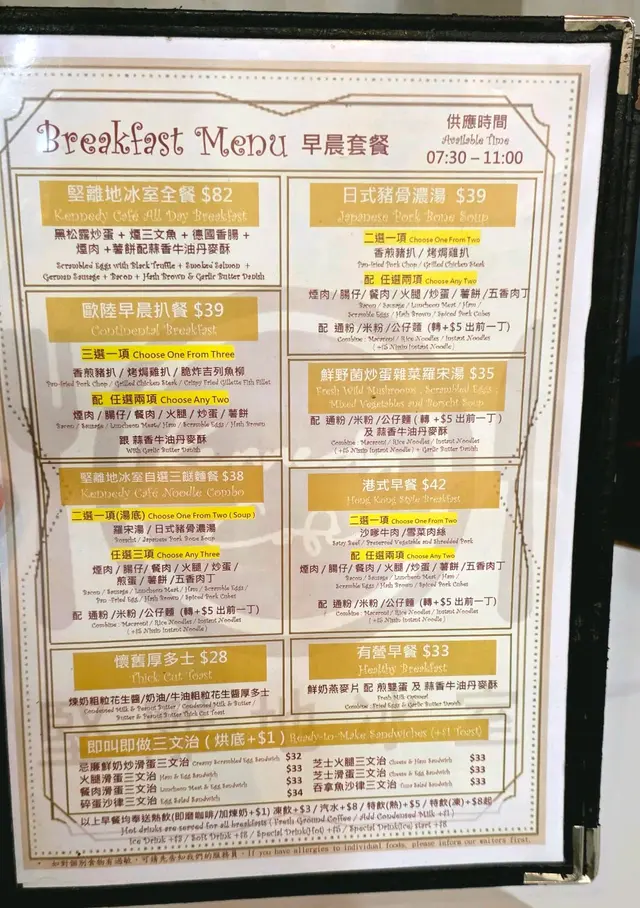 Breakfast Menu 早晨套餐
供應時間
Available Time
07:30 – 11:00
堅離地冰室全餐 $82
Kennedy Café All Day Breakfast
黑松露炒蛋 + 煙三文魚 + 德國香腸 +
煙肉 + 薯餅配蒜香牛油丹麥酥
Scrambled Eggs with Black Truffle + Smoked Salmon +
German Sausage + Bacon + Hash Brown & Garlic Butter Danish
歐陸早晨扒餐 $39
Continental Breakfast
三選一項 Choose One From Three
香煎豬扒 / 烤焗雞扒 / 脆炸吉列魚柳
Pan-fried Pork Chop / Grilled Chicken Steak / Crispy Fried Gillette Fish Fillet
配 任選兩項 Choose Any Two
煙肉 / 腸仔 / 餐肉 / 火腿 / 炒蛋 / 薯餅
Bacon / Sausage / Luncheon Meat / Ham / Scramble Eggs / Hash Brown
跟 蒜香牛油丹麥酥
With Garlic Butter Danish
堅離地冰室自選三餸麵餐 $38
Kennedy Café Noodle Combo
二選一項(湯底) Choose One From Two ( Soup )
羅宋湯 / 日式豬骨濃湯
Borscht / Japanese Pork Bone Soup
任選三項 Choose Any Three
煙肉 / 腸仔 / 餐肉 / 火腿 / 炒蛋 /
煎蛋 / 薯餅 / 五香肉丁
Bacon / Sausage / Luncheon Meat / Ham / Scramble Eggs /
Pan-Fried Eggs / Hash Brown / Spiced Pork Cubes
配 通粉 /米粉 /公仔麵 (轉+$5 出前一丁)
Combine : Macaroni / Rice Noodles / Instant Noodles
( +$5 Nissin Instant Noodle )
懷舊厚多士 $28
Thick Cut Toast
煉奶粗粒花生醬 / 奶油 / 牛油粗粒花生醬厚多士
Condensed Milk & Peanut Butter / Condensed Milk & Butter /
Butter & Peanut Butter Thick Cut Toast
日式豬骨濃湯 $39
Japanese Pork Bone Soup
二選一項 Choose One From Two
香煎豬扒 / 烤焗雞扒
Pan-fried Pork Chop / Grilled Chicken Steak
配 任選兩項 Choose Any Two
煙肉 / 腸仔 / 餐肉 / 火腿 / 炒蛋 / 薯餅 /五香肉丁
Bacon / Sausage / Luncheon Meat / Ham /
Scramble Eggs / Hash Brown / Spiced Pork Cubes
配 通粉 /米粉 /公仔麵 (轉+$5 出前一丁)
Combine : Macaroni / Rice Noodles / Instant Noodles
( +$5 Nissin Instant Noodle )
鮮野菌炒蛋雜菜羅宋湯 $35
Fresh Wild Mushrooms , Scrambled Eggs ,
Mixed Vegetables and Borscht Soup
配 通粉 /米粉 /公仔麵 ( 轉 +$5 出前一丁 )
及 蒜香牛油丹麥酥
Combine : Macaroni / Rice Noodles / Instant Noodles
( +$5 Nissin Instant Noodle ) + Garlic Butter Danish
港式早餐 $42
Hong Kong Style Breakfast
二選一項 Choose One From Two
沙嗲牛肉 /雪菜肉絲
Satay Beef / Preserved Vegetable and Shredded Pork
配 任選兩項 Choose Any Two
煙肉 / 腸仔 / 餐肉 / 火腿 / 炒蛋 / 薯餅 /五香肉丁
Bacon / Sausage / Luncheon Meat / Ham /
Scramble Eggs / Hash Brown / Spiced Pork Cubes
配 通粉 /米粉 /公仔麵 (轉+$5 出前一丁)
Combine : Macaroni / Rice Noodles / Instant Noodles
( +$5 Nissin Instant Noodle )
有營早餐 $33
Healthy Breakfast
鮮奶燕麥片 配 煎雙蛋 及 蒜香牛油丹麥酥
Fresh Milk Oatmeal
Combine : Fried Eggs & Garlic Butter Danish
即叫即做三文治 ( 烘底+$1 ) Ready-to-Make Sandwiches (+$1 Toast)
忌廉鮮奶炒滑蛋三文治 Creamy Scrambled Egg Sandwich $32
火腿滑蛋三文治 Ham & Egg Sandwich $33
餐肉滑蛋三文治 Luncheon Meat & Egg Sandwich $33
碎蛋沙律三文治 Egg Salad Sandwich $34
芝士火腿三文治 Cheese & Ham Sandwich $33
芝士滑蛋三文治 Cheese & Egg Sandwich $33
吞拿魚沙律三文治 Tuna Salad Sandwich $33
以上早餐均奉送熱飲(即磨咖啡/加煉奶+$1) 凍飲+$3 / 汽水+$8 / 特飲(熱)+$5 / 特飲(凍)+$8起
Hot drinks are served for all breakfasts ( Fresh Ground Coffee / Add Condensed Milk +$1 )
Ice Drink +$3 / Soft Drink +$8 / Special Drink(Hot) +$5 / Special Drink(Ice) start +$8
* 如對個別食物有過敏，可請先告知我們的服務員。If you have allergies to individual foods, please inform our waiters first.